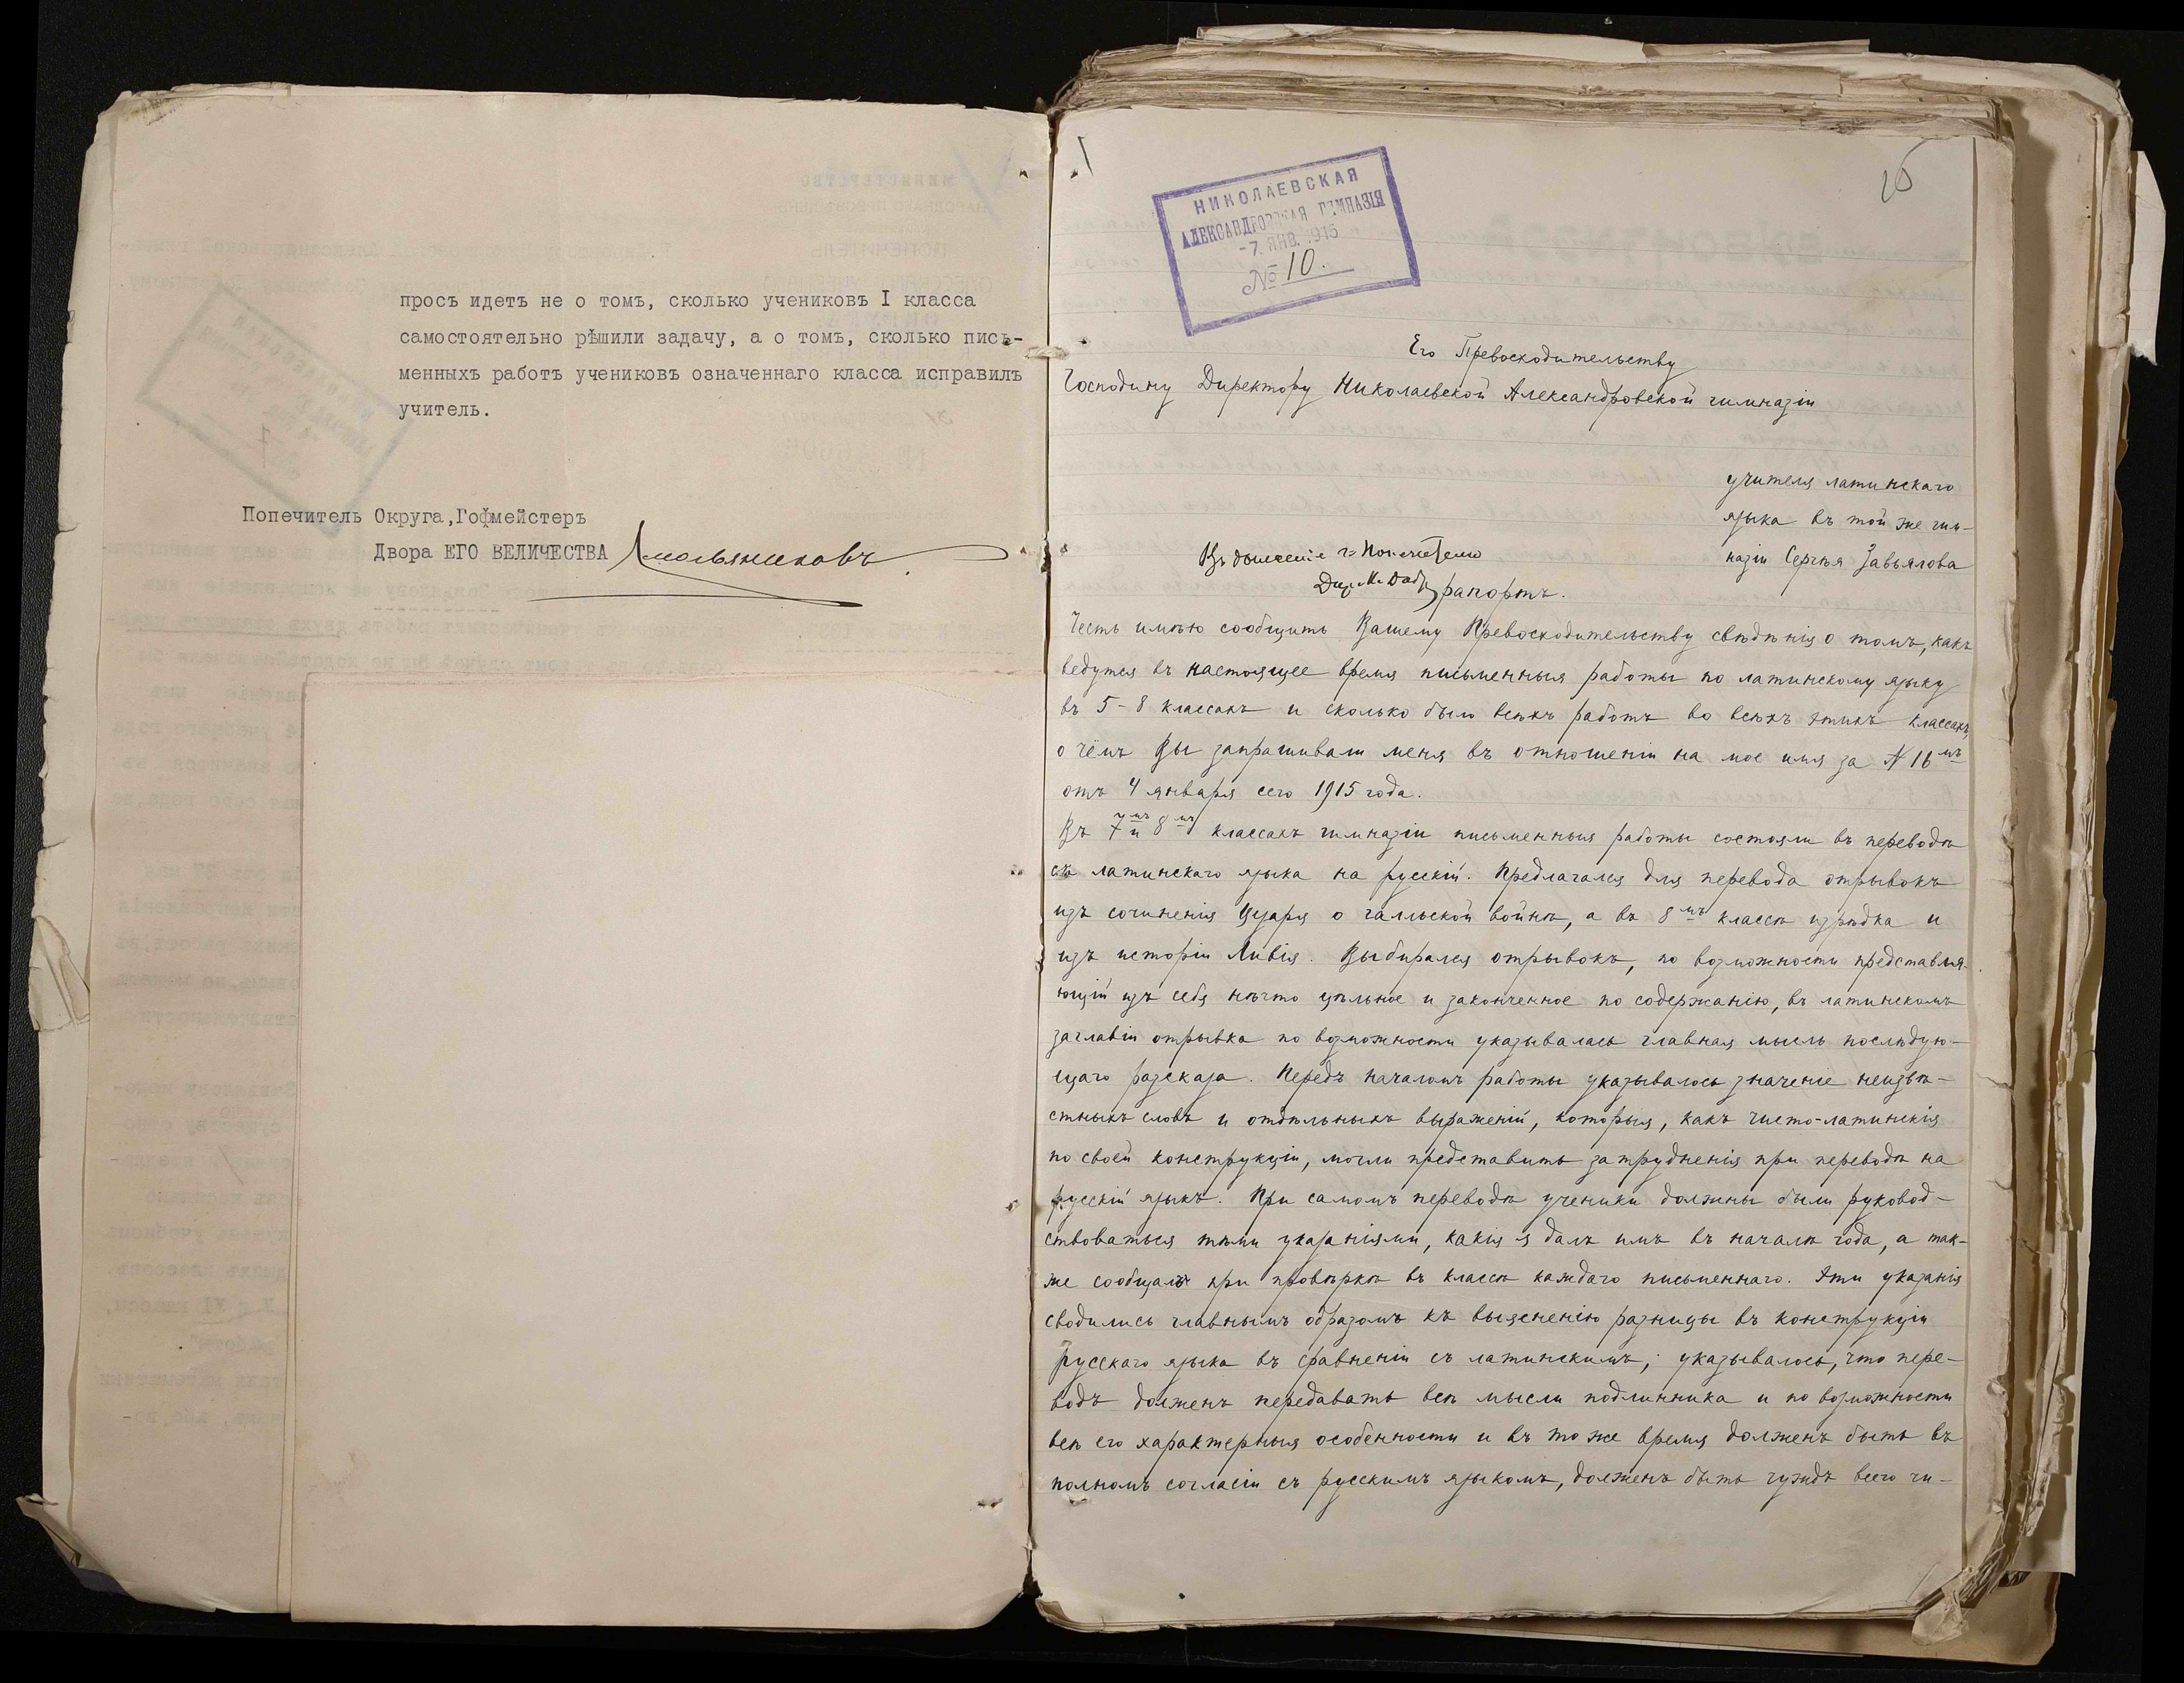 просъ идетъ не о томъ, сколько учениковъ I класса
самостоятельно рѣшили задачу, а о томъ, сколько пись-
менныхъ работъ учениковъ означеннаго класса исправилъ
учитель.
Попечитель Округа,Гофмейстеръ
Двора ЕГО ВЕЛИЧЕСТВА
НИКОЛАЕВСКАЯ
АЛЕКСАНДРОВСКАЯ ГИМНАЗІЯ
-7. ЯНВ. 1915
№ 10.
Его Превосходительству
Господину Директору Николаевской Александровской гимназіи
учителя латинскаго
языка въ той же гим-
назіи Сергѣя Завьялова
рапортъ.
Честь имѣю сообщить Вашему Превосходительству свѣдѣнія о томъ, какъ
ведутся въ настоящее время письменныя работы по латинскому языку
въ 5-8 классахъ и сколько было всѣхъ работъ во всѣхъ этихъ классахъ,
о чёмъ Вы запрашивали меня въ отношеніи на мое имя за № 16мъ
отъ 4 января сего 1915 года.
Въ 7мъ и 8мъ классахъ гимназіи письменныя работы состояли въ переводѣ
съ латинскаго языка на русскій. Предлагался для перевода отрывокъ
изъ сочиненія Цезаря о галльской войнѣ, а въ 8мъ классѣ изрѣдка и
изъ исторіи Ливія. Выбирался отрывокъ, по возможности представля-
ющій изъ себя нѣчто цѣльное и законченное по содержанію, въ латинскомъ
заглавіи отрывка по возможности указывалась главная мысль послѣдую-
щаго разсказа. Передъ началомъ работы указывалось значеніе неизвѣ-
стныхъ словъ и отдѣльныхъ выраженій, которыя, какъ чисто-латинскія
по своей конструкціи, могли представить затрудненія при переводѣ на
русскій языкъ. При самомъ переводѣ ученики должны были руковод-
ствоваться тѣми указаніями, какія я далъ имъ въ началѣ года, а так-
же сообщалъ при провѣркѣ въ классѣ каждаго письменнаго. Эти указанія
сводились главнымъ образомъ къ выясненію разницы въ конструкціи
русскаго языка въ сравненіи съ латинскимъ; указывалось, что пере-
водъ долженъ передавать всѣ мысли подлинника и по возможности
всѣ его характерныя особенности и въ то же время долженъ быть въ
полномъ согласіи съ русскимъ языкомъ, долженъ быть чуждъ всего чи-